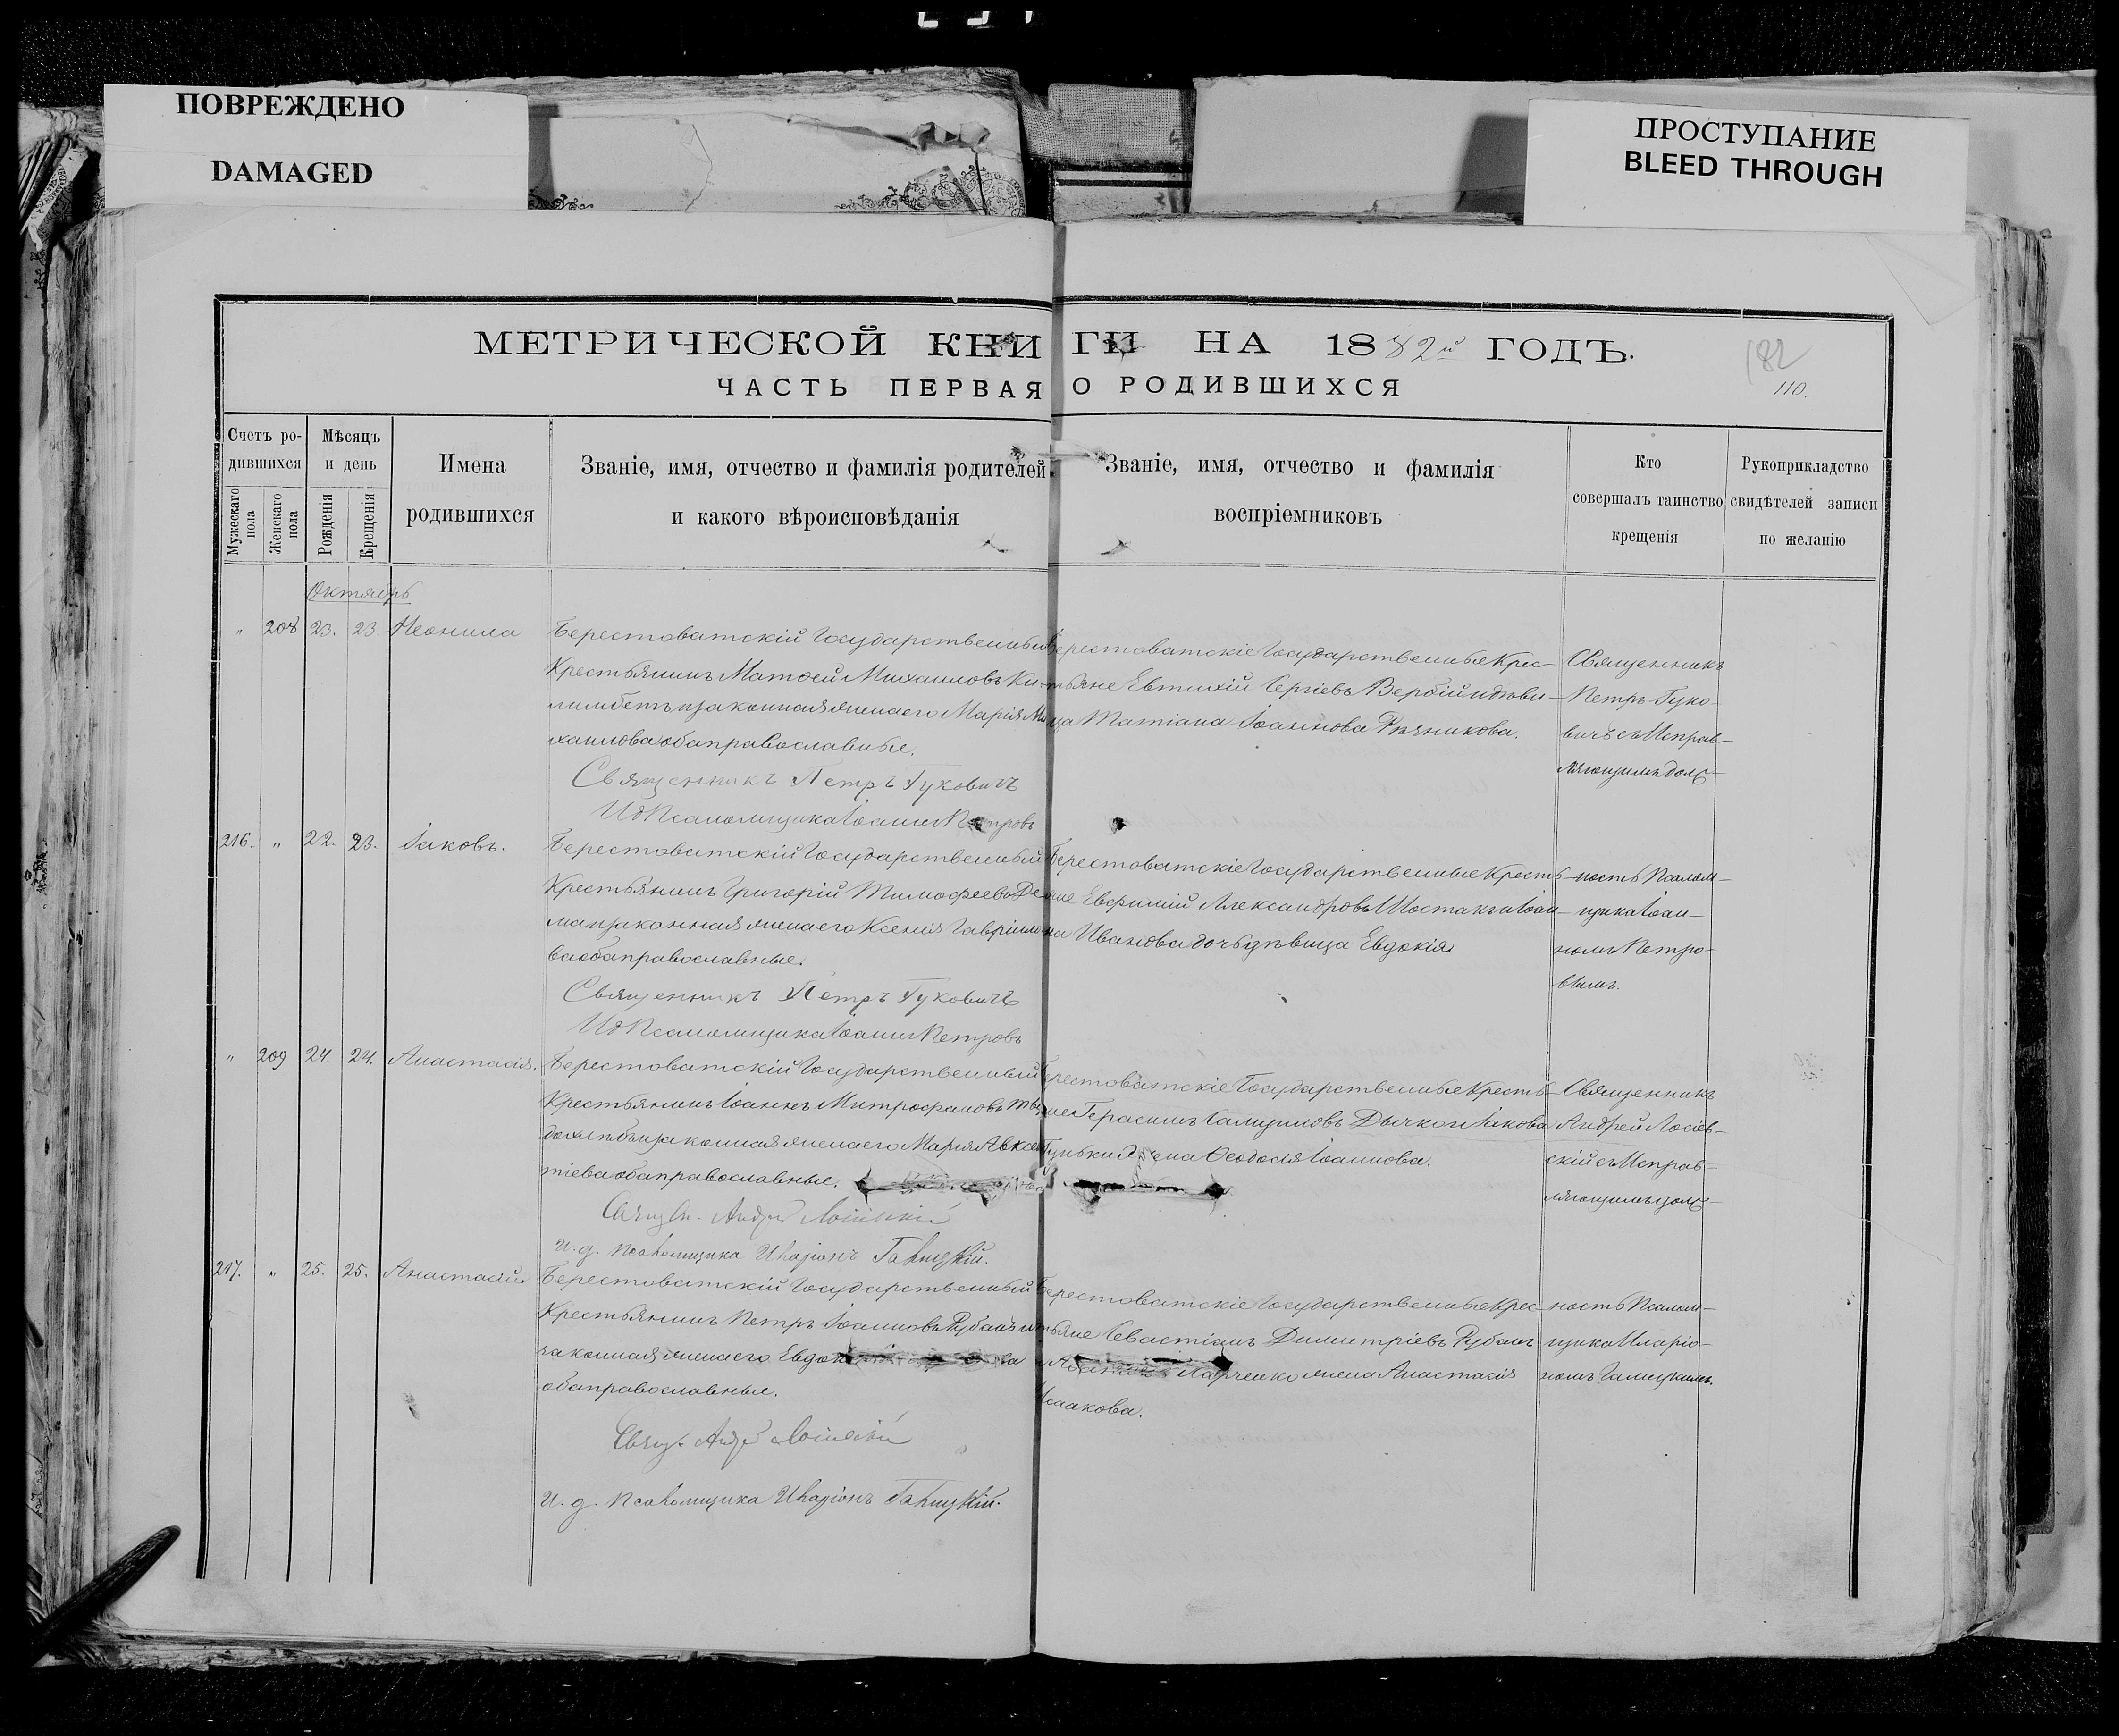 ПОВРЕЖДЕНО
DAMAGED
ПРОСТУПАНИЕ
BLEED THROUGH
МЕТРИЧЕСКОЙ КНИГИ НА 1882й ГОДЪ.
ЧАСТЬ ПЕРВАЯ О РОДИВШИХСЯ
182
110.
Счетъ ро-
дившихся
Мужескаго пола
Женскаго пола
Мѣсяцъ
и день
Рожденія
Крещенія
Имена
родившихся
Званіе, имя, отчество и фамилія родителей
и какого вѣроисповѣданія
Званіе, имя, отчество и фамилія
воспріемниковъ
Кто
совершалъ таинство
крещенія
Рукоприкладство
свидѣтелей записи
по желанію
Октябрь
" 208 23. 23. Неонила
Берестоватскій Государственный
Крестьянинъ Матѳей Михаиловъ Ки-
лимбетъ и законная жена его Марія Ми
хаилова оба православные.
Священникъ Петръ Гуковичъ
ИдПсаломщика Іоаннъ Петровъ
Берестоватскіе Государственные Крес-
тьяне Евтихій Сергіевъ Вербій и дѣви-
ца Татіана Іоаннова Рѣзникова.
Священникъ
Петръ Гуко-
вичъ съ Исправ-
ляющимъ долж-
216. " 22. 23. Іаковъ.
Берестоватскій Государственный
Крестьянинъ Григорій Тимофеевъ Де
ма и законная жена его Ксенія Гавріило
ва оба православные.
Священникъ Петръ Гуковичъ
ИдПсаломщика Іоаннъ Петровъ
Берестоватскіе Государственные Кресть-
яне Евфимій Александровъ Шостакъ и Іоан-
на Иванова дочь дѣвица Евдокія
ность Псалом-
щика Іоан-
номъ Петро-
вымъ.
" 209 24. 24. Анастасія.
Берестоватскій Государственный
Крестьянинъ Іоаннъ Митрофановъ Твер
дохлѣбъ и законная жена его Марія Авксен
тіева оба православные.
Свящ. Андрей Лосіевскій
И. д. Псаломщика Иларіонъ Галицкій.
Берестоватскіе Государственные Кресть-
яне Герасимъ Самуиловъ Дычко и Іакова
Гуньки жена Ѳеодосія Іоаннова.
Священникъ
Андрей Лосіев-
скій съ Исправ-
ляющимъ долж-
217. " 25. 25. Анастасій
Берестоватскій Государственный
Крестьянинъ Петръ Іоанновъ Рубанъ и
законная жена его Евдок
оба православные.
Свящ. Андрей Лосіевскій
И. д. Псаломщика Иларіонъ Галицкій.
Берестоватскіе Государственные Крес-
тьяне Севастіанъ Димитріевъ Рубанъ
Марченко жена Анастасія
Исаакова.
ность Псалом-
щика Иларіо-
номъ Галицкимъ.